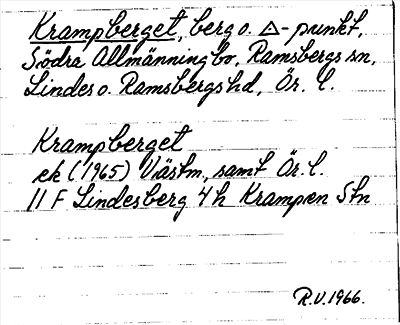 Krampberget, berg o. △-punkt,
Södra Allmänningbo, Ramsbergs sn,
Lindes o. Ramsbergs hd, Ör. l.
Krampberget
ek (1965) Västm., samt Ör. l.
11 F Lindesberg 4 h Krampen Stn
R.V. 1966.